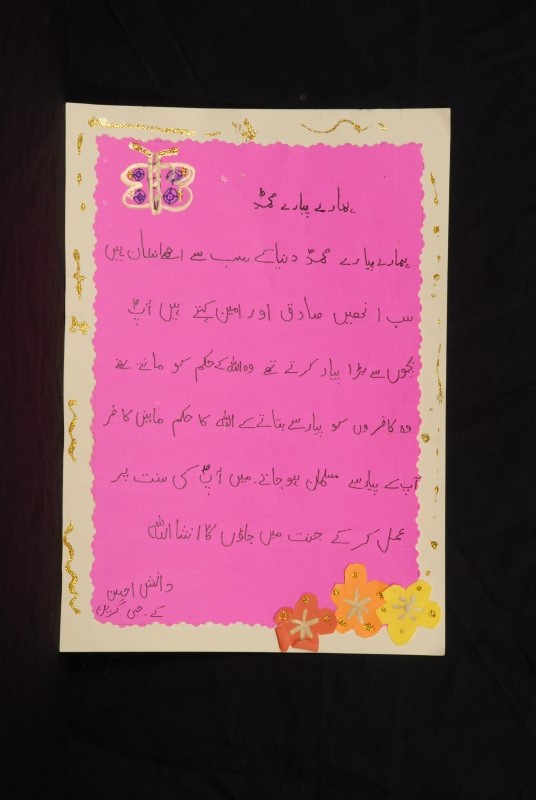 ہمارے پیارے محمدؐ
ہمارے پیارے محمدؐ دنیا کے سب سے اچھے انسان ہیں
سب انھیں صادق اور امین کہتے ہیں آپؐ
بچوں سے بڑا پیار کرتے تھے وہ اللہ کے حکم کو مانتے تھے
وہ کافروں کو پیار سے بتاتے کے اللہ کا حکم مانیں کافر
آپ کے پیار سے مسلمان ہو جاتے۔ میں آپؐ کی سنت پر
عمل کر کے جنت میں جاؤں گا انشااللہ
دانش امین
کے۔ جی